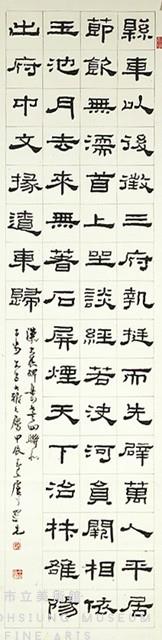 縣車以後徵三府執挺而先辟萬人平居
節飲無濡首上坐談經若決河負闕相依
玉池月去來無著石屏煙天下治林雒陽
出府中文掾遣東歸
市立美術館
OHSIUNG MUSEUM
FINE ARTS